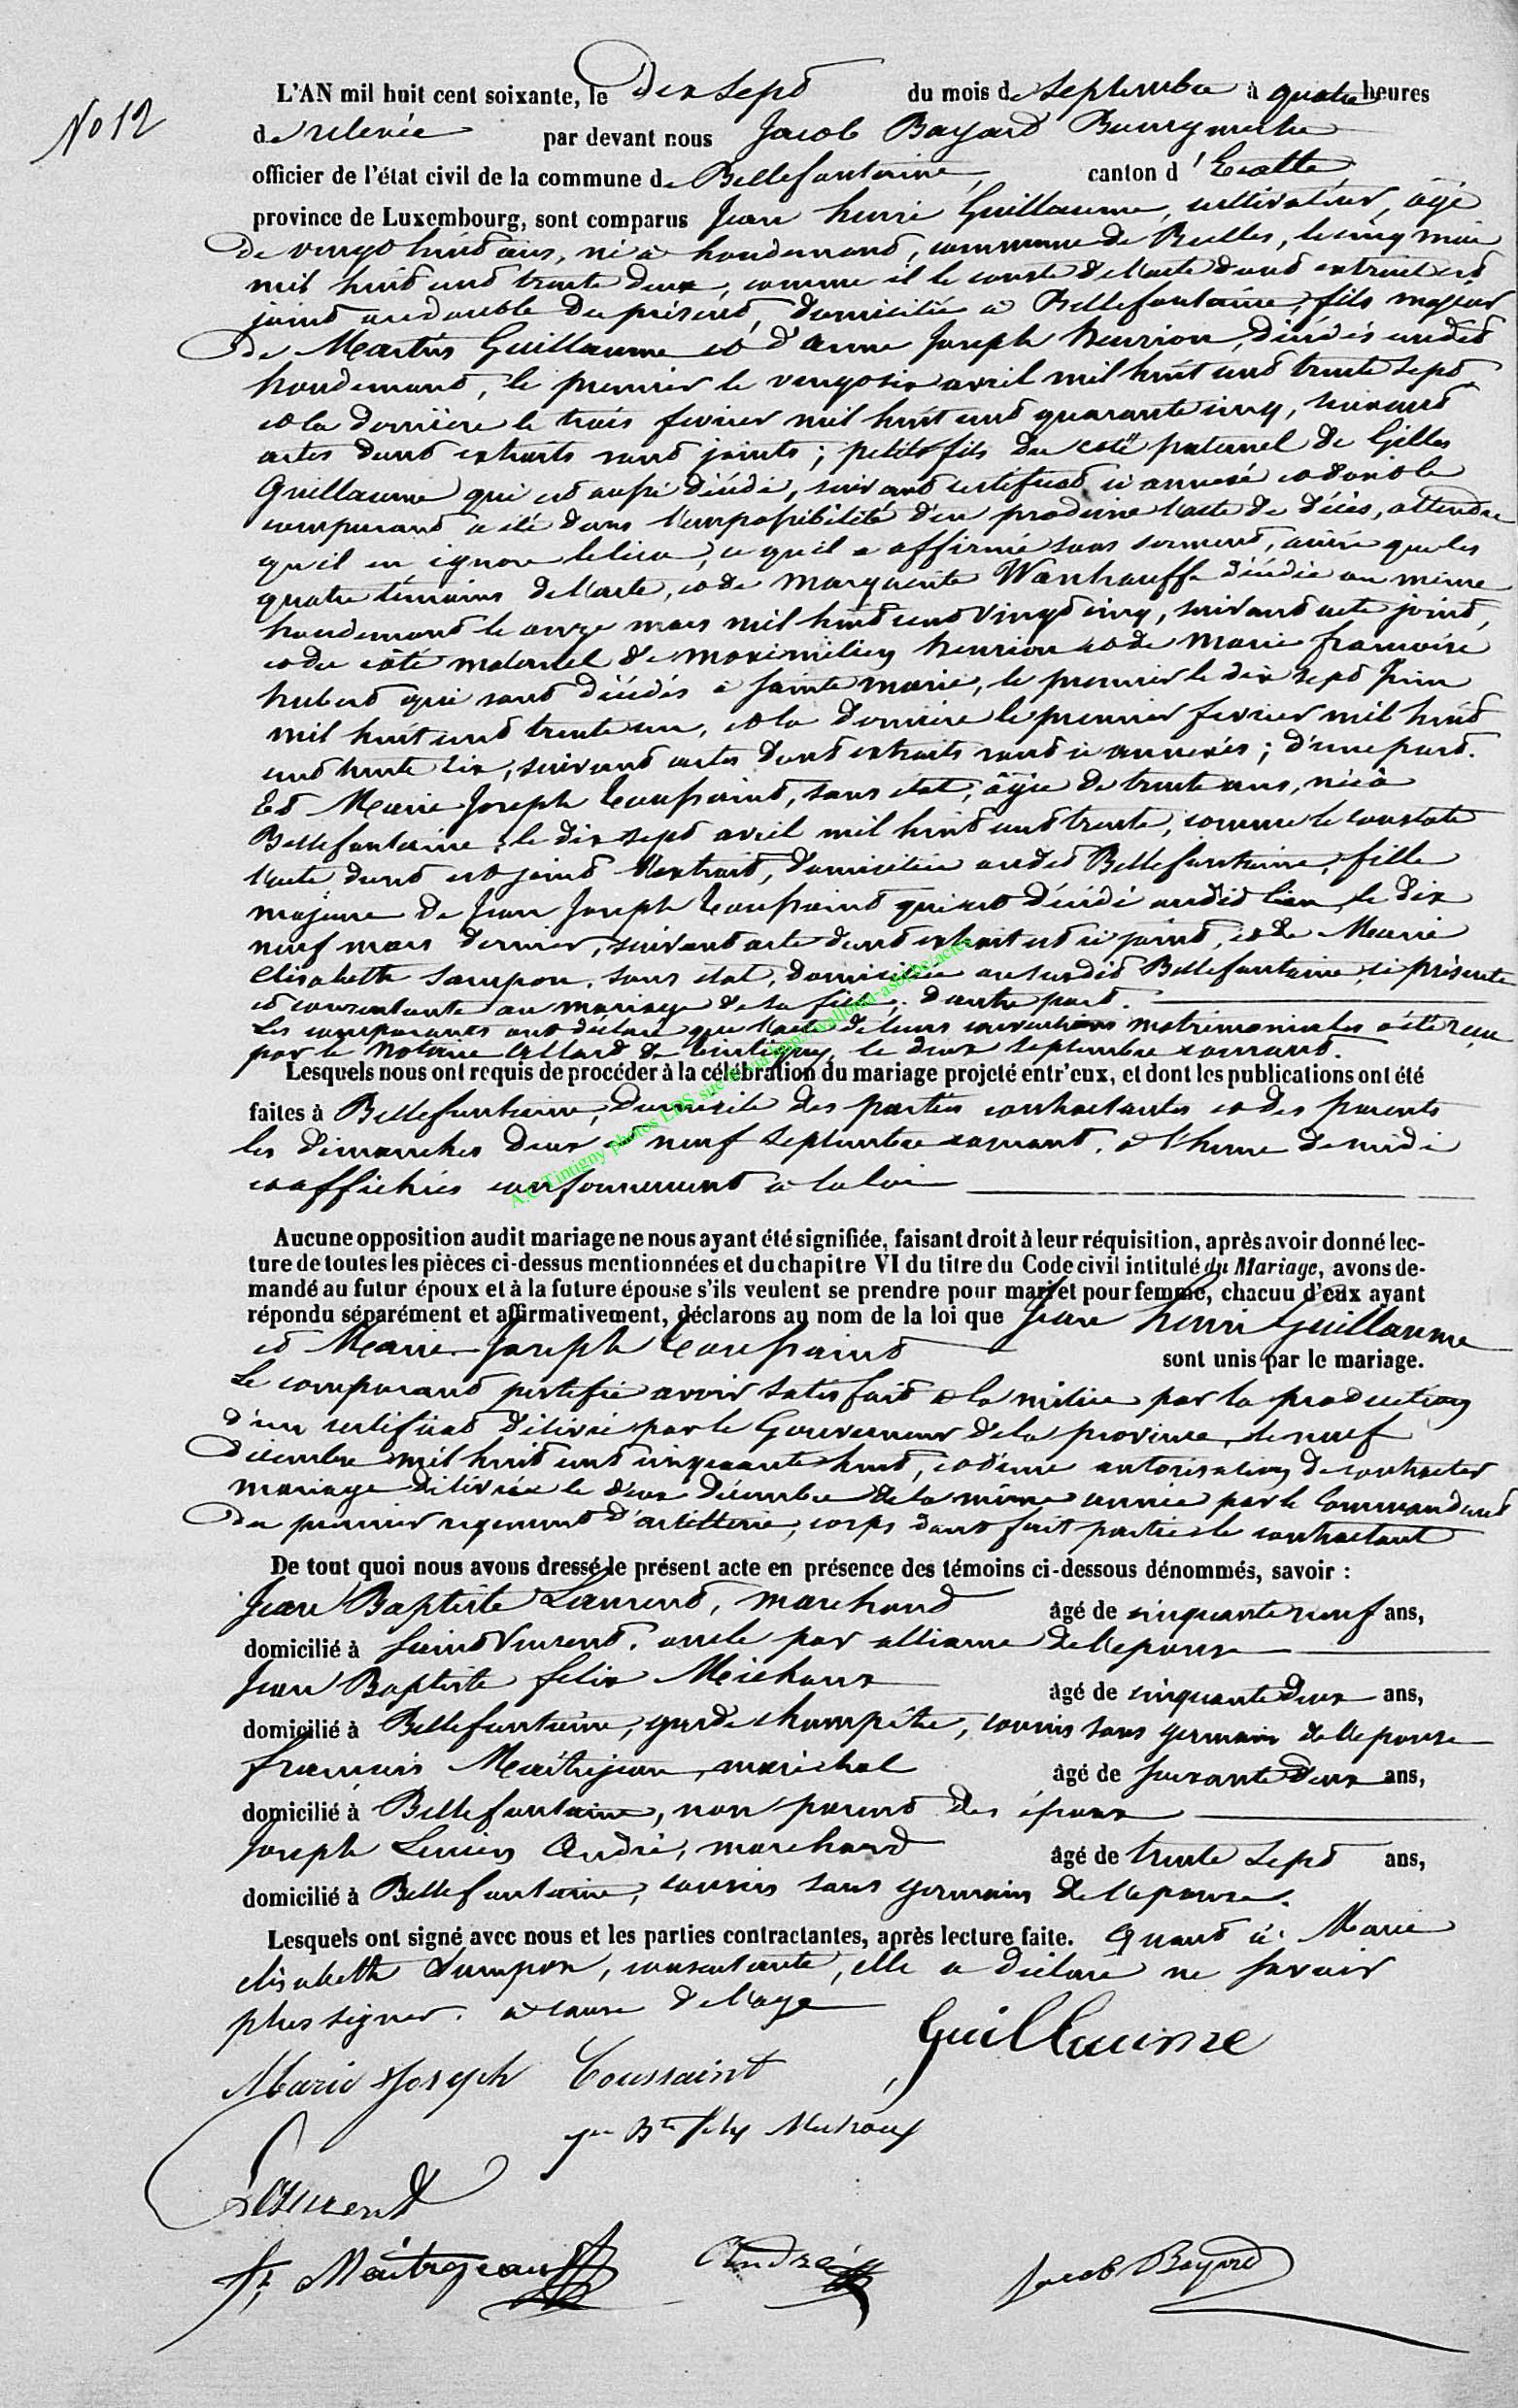 No 12
L'AN mil huit cent soixante, le dix sept du mois de septembre à quatre heures
de relevée par devant nous Jacob Bayard Bourgmestre
officier de l'état civil de la commune de Bellefontaine, canton d'Etalle
province de Luxembourg, sont comparus Jean henri Guillaume, cultivateur, âgé
de vingt huit ans, né à houdemont, commune de Rulles, le cinq mai
mil huit cent trente deux, comme il le conste de l'acte dont extrait est
joint au double du présent, domicilié à Bellefontaine, fils majeur
de Martin Guillaume et d'anne Joseph henrion, décédés audit
houdemont, le premier le vingt six avril mil huit cent trente sept
et la dernière le trois fevrier mil huit cent quarante cinq, suivant
actes dont extraits sont joints; petit fils du coté paternel de Gilles
Guillaume qui est aussi décédé, suivant certificat ci annexé et dont le
comparant a été dans l'impossibilité d'en produire l'acte de décès, attendu
qu'il en ignore le lieu, ce qu'il a affirmé sous serment, ainsi que les
quatre témoins de l'acte, et de marguerite Wanhauffe décédée au même
houdemont le onze mars mil huit cent vingt cinq, suivant acte joint,
et du côté maternel de maximilien henrion et de marie francoise
hubert qui sont décédés à sainte marie, le premier le dix sept Juin
mil huit cent trente un, et la dernière le premier fevrier mil huit
cent trente six, suivant actes dont extraits sont ci annexés; d'une part.
Et Marie Joseph Toussaint, sans état, âgée de trente ans, née à
Bellefontaine, le dix sept avril mil huit cent trente, comme le constate
l'acte dont est joint l'extrait, domiciliée audit Bellefontaine, fille
majeure de Jean Joseph Toussaint qui est décédé audit lieu, le dix
neuf mars dernier, suivant acte dont extrait est ci joint, et de Marie
Elisabeth Sampon, sans état, domiciliée au susdit Bellefontaine, ci présente
et consentante au mariage de sa fille; d'autre part.
Les comparants ont déclaré que l'acte de leurs conventions matrimoniales a été reçu
par le Notaire Allard de Tintigny, le deux septembre courant.
Lesquels nous ont requis de procéder à la célébration du mariage projeté entr'eux, et dont les publications ont été
faites à Bellefontaine, domicile des parties contractantes et des parents
les dimanches deux et neuf septembre courant, à l'heure de midi
et affichées conformement à la loi
Aucune opposition audit mariage ne nous ayant été signifiée, faisant droit à leur réquisition, après avoir donné lec-
ture de toutes les pièces ci-dessus mentionnées et du chapitre VI du titre du Code civil intitulé du Mariage, avons de-
mandé au futur époux et à la future épouse s'ils veulent se prendre pour mari et pour femme, chacuu d'eux ayant
répondu séparément et affirmativement, déclarons au nom de la loi que Jean henri Guillaume
et Marie Joseph Toussaint sont unis par le mariage.
Le comparant justifie avoir satisfait à la milice par la production
d'un certificat délivré par le Gouverneur de la province, le neuf
décembre mil huit cent cinquante huit, et d'une autorisation de contracter
mariage délivrée le deux décembre de la même année par le Commandant
du premier regiment d'artillerie, corps dont fait partie le contractant
De tout quoi nous avons dressé le présent acte en présence des témoins ci-dessous dénommés, savoir :
Jean Baptiste Laurent, marchand âgé de cinquante neuf ans,
domicilié à Saint Vincent, oncle par alliance de l'epouse
Jean Baptiste felix Michaux âgé de cinquante deux ans,
domicilié à Bellefontaine, garde champêtre, cousin sous germain de l'epouse
francois Maitrejean, maréchal âgé de soixante deux ans,
domicilié à Bellefontaine, non parent des époux
Joseph Lucien André, marchand âgé de trente sept ans,
domicilié à Bellefontaine, cousin sous germain de l'epouse.
Lesquels ont signé avec nous et les parties contractantes, après lecture faite. Quant à Marie
elisabeth Sampon, consentante, elle a déclaré ne savoir
plus signer, à cause de l'age
Guillaume
Marie Joseph Toussaint
Jn Bte felix Michaux
Laurent
fs Maitrejean André Jacob Bayard
A.C. Tintigny photos LDS site via http://wallonia-asbl.be/actes